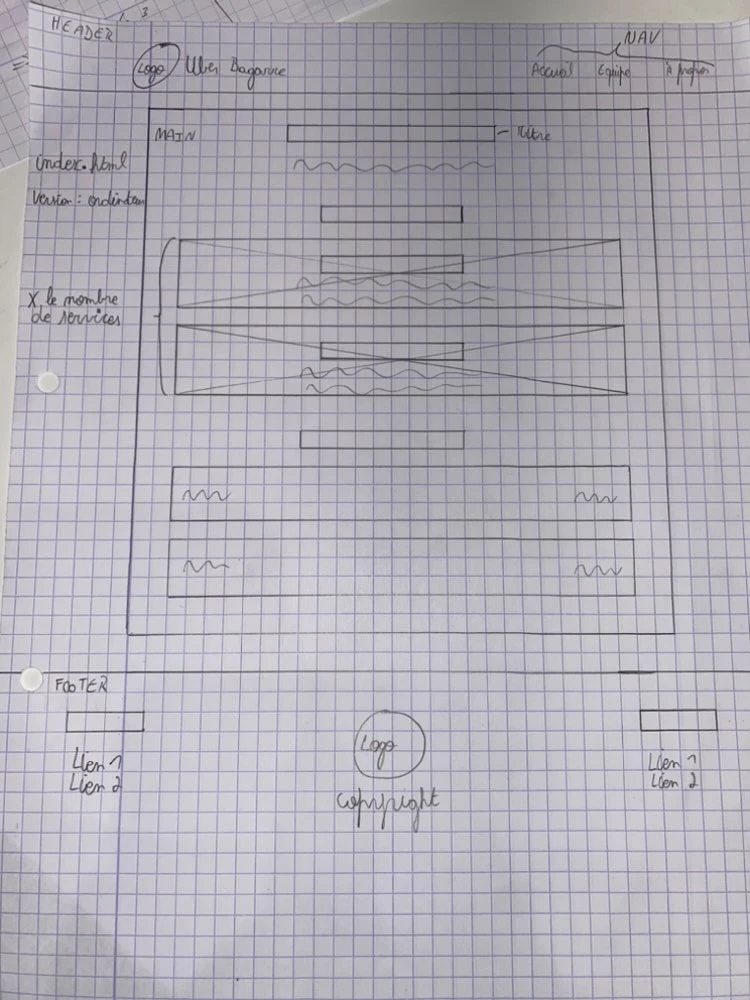 1. 3
HEADER
NAV
Logo Uber Bagarre
Accueil Equipe À propos
MAIN
Titre
index.html
Version : ordinateur
X, le nombre
de services
FOOTER
Lien 1
Lien 2
Logo
Copyright
Lien 1
Lien 2